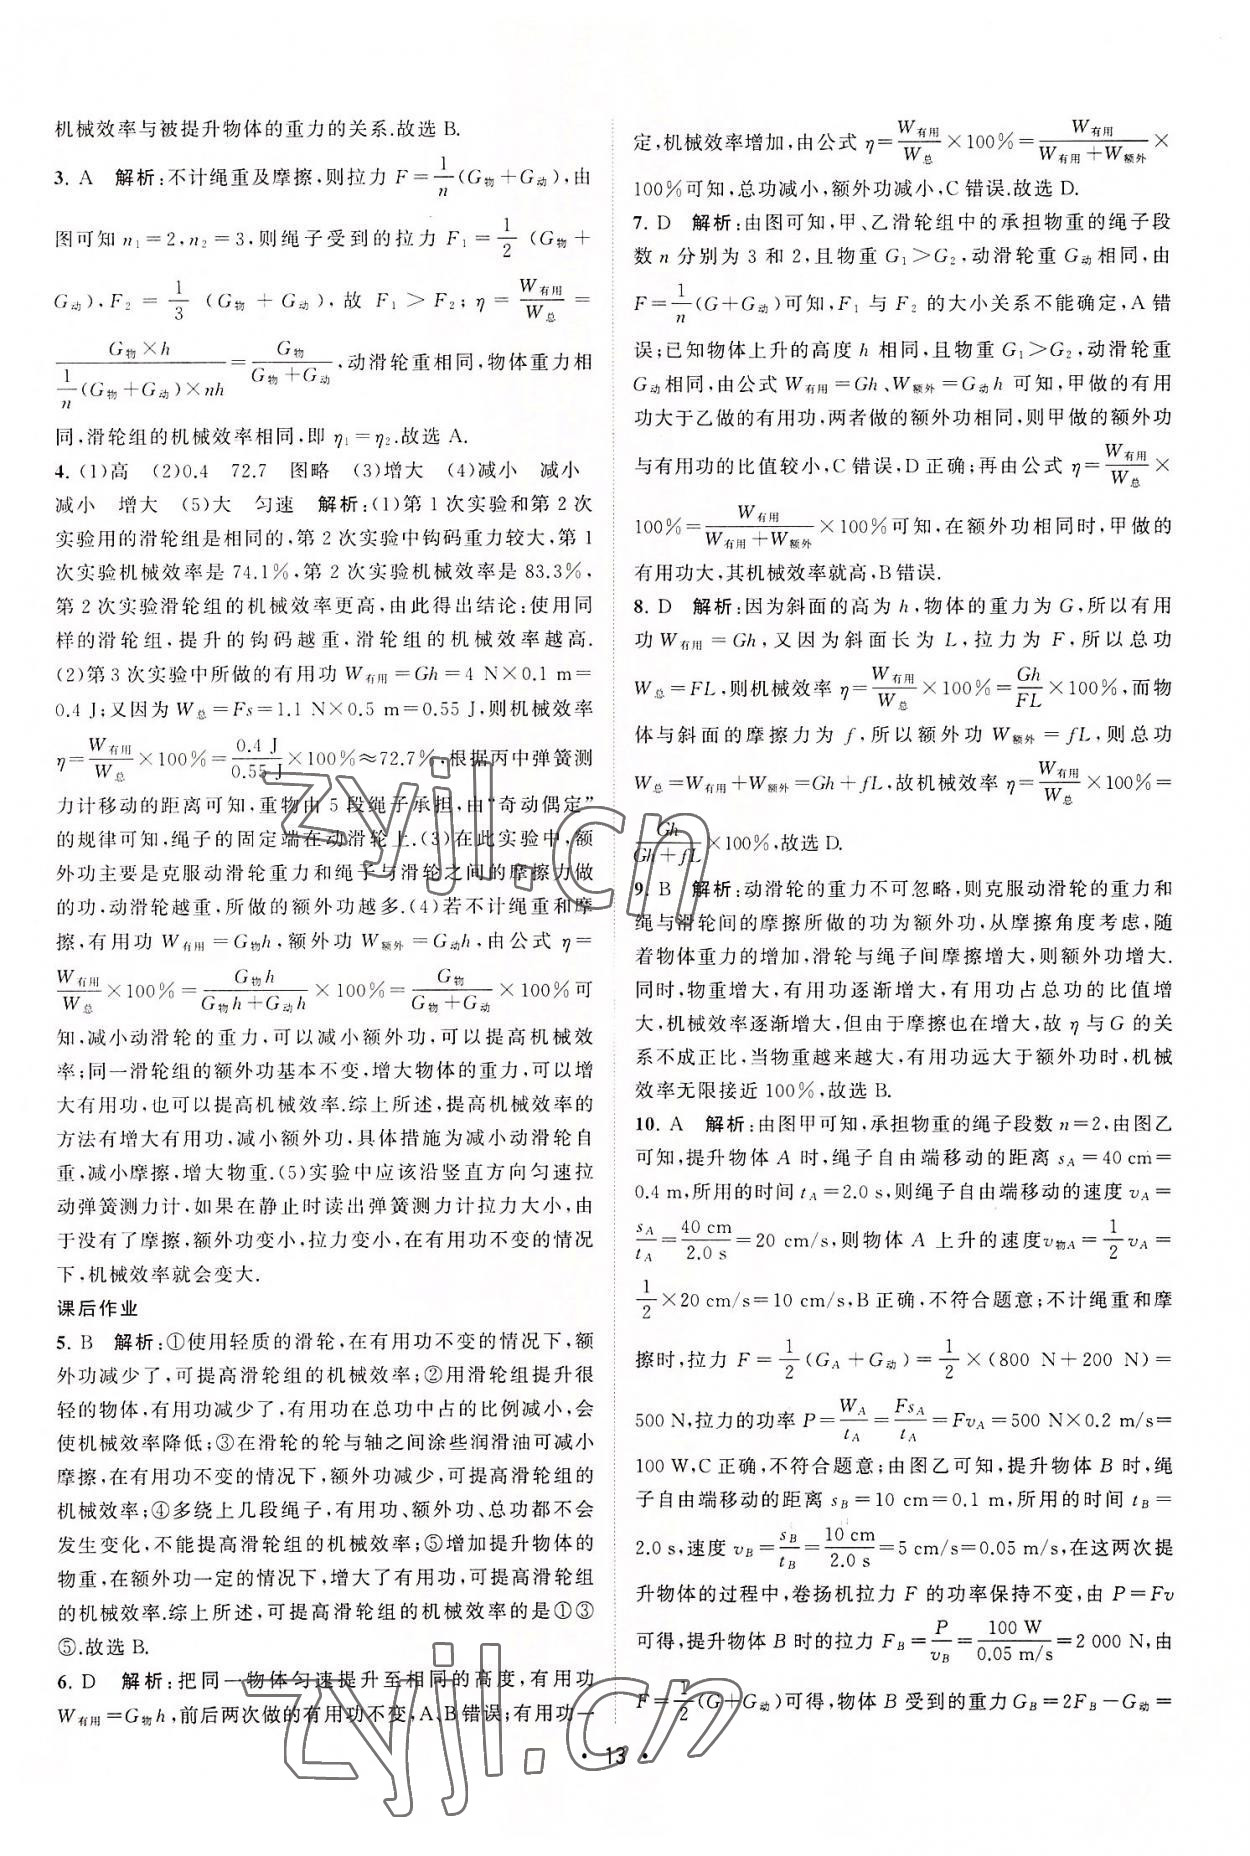 机械效率与被提升物体的重力的关系.故选 B.
3. A 解析:不计绳重及摩擦,则拉力 F=1/n(G物+G动),由
图可知 n₁=2,n₂=3,则绳子受到的拉力 F₁=1/2(G物+
G动),F₂=1/3(G物+G动),故 F₁>F₂;η=W有用/W总=
G物×h/[1/n(G物+G动)×nh]=G物/(G物+G动),动滑轮重相同,物体重力相
同,滑轮组的机械效率相同,即 η₁=η₂.故选 A.
4. (1)高 (2)0.4 72.7 图略 (3)增大 (4)减小 减小
减小 增大 (5)大 匀速 解析:(1)第 1 次实验和第 2 次
实验用的滑轮组是相同的,第 2 次实验中钩码重力较大,第 1
次实验机械效率是 74.1%,第 2 次实验机械效率是 83.3%,
第 2 次实验滑轮组的机械效率更高,由此得出结论:使用同
样的滑轮组,提升的钩码越重,滑轮组的机械效率越高.
(2)第 3 次实验中所做的有用功 W有用=Gh=4 N×0.1 m=
0.4 J;又因为 W总=Fs=1.1 N×0.5 m=0.55 J,则机械效率
η=W有用/W总×100%=0.4 J/0.55 J×100%≈72.7%.根据丙中弹簧测
力计移动的距离可知,重物由 5 段绳子承担,由“奇动偶定”
的规律可知,绳子的固定端在动滑轮上.(3)在此实验中,额
外功主要是克服动滑轮重力和绳子与滑轮之间的摩擦力做
的功,动滑轮越重,所做的额外功越多.(4)若不计绳重和摩
擦,有用功 W有用=G物h,额外功 W额外=G动h,由公式 η=
W有用/W总×100%=G物h/(G物h+G动h)×100%=G物/(G物+G动)×100%可
知,减小动滑轮的重力,可以减小额外功,可以提高机械效
率;同一滑轮组的额外功基本不变,增大物体的重力,可以增
大有用功,可以提高机械效率.综上所述,提高机械效率的
方法有增大有用功,减小额外功,具体措施为减小动滑轮自
重,减小摩擦,增大物重.(5)实验中应该沿竖直方向匀速拉
动弹簧测力计,如果在静止时读出弹簧测力计拉力大小,由
于没有了摩擦,额外功变小,拉力变小,在有用功不变的情况
下,机械效率就会变大.
课后作业
5. B 解析:①使用轻质的滑轮,在有用功不变的情况下,额
外功减少了,可提高滑轮组的机械效率;②用滑轮组提升很
轻的物体,有用功减少了,有用功在总功中占的比例减小,会
使机械效率降低;③在滑轮的轮与轴之间涂些润滑油可减小
摩擦,在有用功不变的情况下,额外功减少,可提高滑轮组的
机械效率;④多绕上几段绳子,有用功、额外功、总功都不会
发生变化,不能提高滑轮组的机械效率;⑤增加提升物体的
物重,在额外功一定的情况下,增大了有用功,可提高滑轮组
的机械效率.综上所述,可提高滑轮组的机械效率的是①③
⑤.故选 B.
6. D 解析:把同一物体匀速提升至相同的高度,有用功
W有用=G物h,前后两次做的有用功不变,A、B错误;有用功一
定,机械效率增加,由公式 η=W有用/W总×100%=W有用/(W有用+W额外)×
100%可知,总功减小,额外功减小,C错误.故选 D.
7. D 解析:由图可知,甲、乙滑轮组中的承担物重的绳子段
数 n 分别为 3 和 2,且物重 G₁>G₂,动滑轮重 G动相同,由
F=1/n(G+G动)可知,F₁ 与 F₂ 的大小关系不能确定,A 错
误;已知物体上升的高度 h 相同,且物重 G₁>G₂,动滑轮重
G动相同,由公式 W有用=Gh、W额外=G动h 可知,甲做的有用
功大于乙做的有用功,两者做的额外功相同,则甲做的额外功
与有用功的比值较小,C错误,D正确;再由公式 η=W有用/W总×
100%=W有用/(W有用+W额外)×100%可知,在额外功相同时,甲做的
有用功大,其机械效率就高,B错误.
8. D 解析:因为斜面的高为 h,物体的重力为 G,所以有用
功 W有用=Gh,又因为斜面长为 L,拉力为 F,所以总功
W总=FL,则机械效率 η=W有用/W总×100%=Gh/FL×100%,而物
体与斜面的摩擦力为 f,所以额外功 W额外=fL,则总功
W总=W有用+W额外=Gh+fL,故机械效率 η=W有用/W总×100%=
Gh/(Gh+fL)×100%,故选 D.
9. B 解析:动滑轮的重力不可忽略,则克服动滑轮的重力和
绳与滑轮间的摩擦所做的功为额外功,从摩擦角度考虑,随
着物体重力的增加,滑轮与绳子间摩擦增大,额外功增大.
同时,物重增大,有用功逐渐增大,有用功占总功的比值增
大,机械效率逐渐增大,但由于摩擦也在增大,故 η 与 G 的关
系不成正比,当物重越来越大,有用功远大于额外功时,机械
效率无限接近 100%,故选 B.
10. A 解析:由图甲可知,承担物重的绳子段数 n=2,由图乙
可知,提升物体 A 时,绳子自由端移动的距离 sA=40 cm=
0.4 m,所用的时间 tA=2.0 s,则绳子自由端移动的速度 vA=
sA/tA=40 cm/2.0 s=20 cm/s,则物体 A 上升的速度v物A=1/2 vA=
1/2×20 cm/s=10 cm/s,B正确,不符合题意;不计绳重和摩
擦时,拉力 F=1/2(GA+G动)=1/2×(800 N+200 N)=
500 N,拉力的功率 P=WA/tA=FsA/tA=FvA=500 N×0.2 m/s=
100 W,C正确,不符合题意;由图乙可知,提升物体 B 时,绳
子自由端移动的距离 sB=10 cm=0.1 m,所用的时间 tB=
2.0 s,速度 vB=sB/tB=10 cm/2.0 s=5 cm/s=0.05 m/s,在这两次提
升物体的过程中,卷扬机拉力 F 的功率保持不变,由 P=Fv
可得,提升物体 B 时的拉力 FB=P/vB=100 W/0.05 m/s=2 000 N,由
F=1/2(G+G动)可得,物体 B 受到的重力 GB=2FB-G动=
• 13 •
zyjl.cn
zyjl.cn